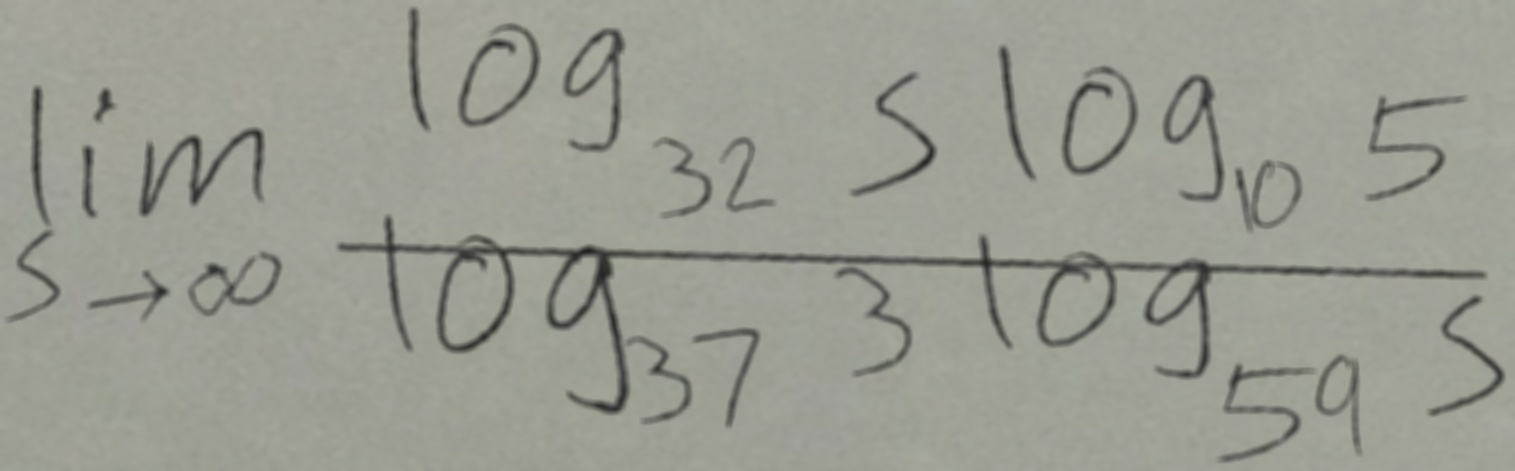 lim_{s→∞} \frac{log_{32} s log_{10} 5}{log_{37} 3 log_{59} s}